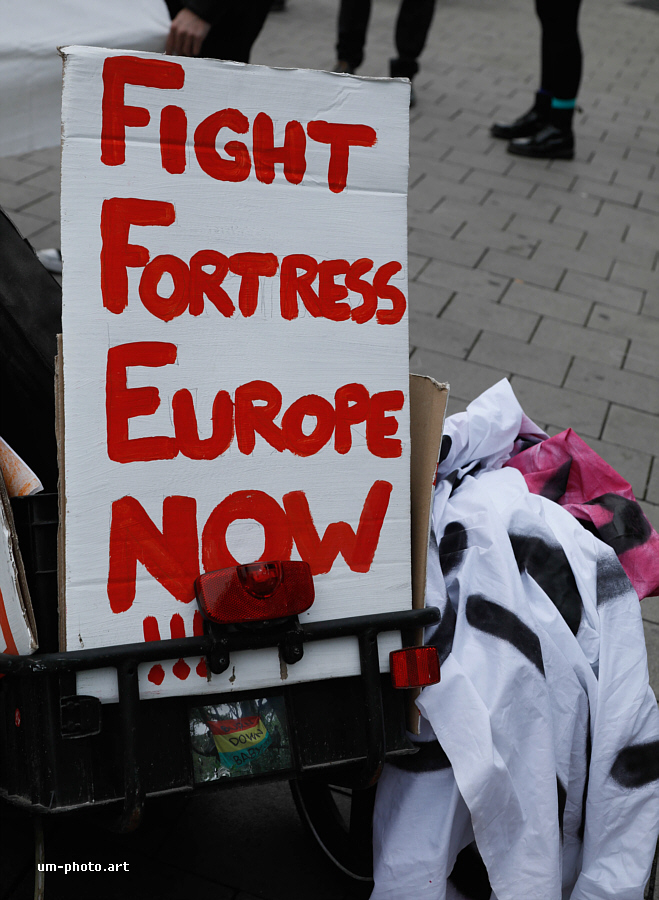 FIGHT
FORTRESS
EUROPE
NOW
!!!
DOWN
um-photo.art